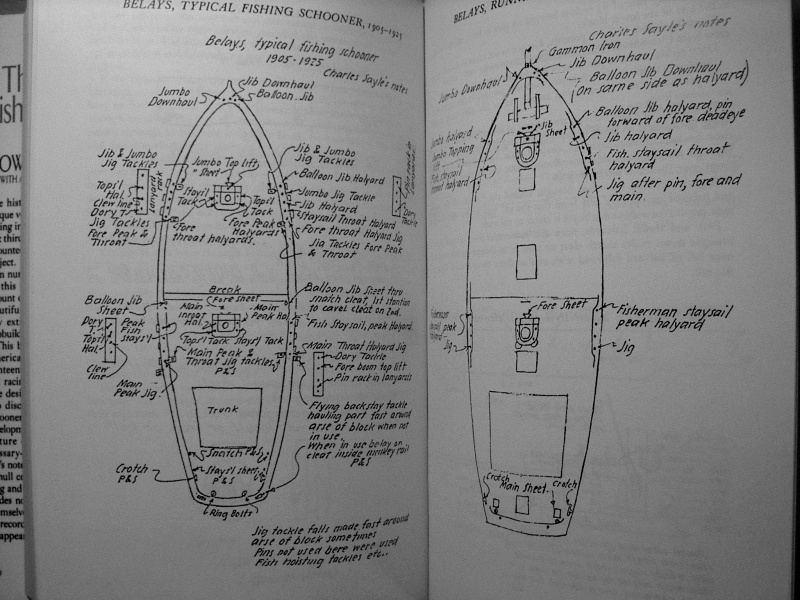 BELAYS, TYPICAL FISHING SCHOONER, 1905-1925
Belays, typical fishing schooner
1905-1925
Charles Sayle's notes
Jumbo
Downhaul
Jib Downhaul
Balloon Jib
Jib & Jumbo
Jig Tackles
Jumbo Toplift
" Sheet
Jib & Jumbo
Jig Tackles
Balloon Jib Halyard
Tops'l
Hal.
Clew line
Dory T
Jig Tackles
Fore Peak &
Throat
Lanyard
rack
Stays'l
Tack
Tops'l
Tack
Jumbo Jig Tackle
Jib Halyard
Staysail Throat Halyard
Fore throat Halyard Jig
Dory
Tackle
Fore
throat halyards.
Fore Peak
Halyards
Jig Tackles Fore Peak
& Throat
Break
Fore Sheet
Balloon Jib
Sheet
Main
throat
Hal.
Main
Peak Hal.
Balloon Jib Sheet thru
snatch cleat, 1st stantion
to cavel cleat on 2nd.
Dory
T.
Tops'l
Hal.
Clew
line
Peak
Fish
stays'l
Tops'l Tack Stays'l Tack
Fish Staysail, peak Halyard
Main Peak &
Throat Jig tackles
P&S
Main Throat Halyard Jig
Dory Tackle
Fore boom top lift
Pin rack in lanyards
Main
Peak Jig
Trunk
Flying backstay tackle
hauling part fast around
arse of block when not
in use.
When in use belay on
cleat inside monkey rail
P&S
Snatch P&S
Stays'l sheet
P&S
Crotch
P&S
Ring Bolts
Jig tackle falls made fast around
arse of block sometimes
Pins not used here were used
Fish hoisting tackles etc..
BELAYS,
Charles Sayle's notes
Gammon Iron
Jib Downhaul
Balloon Jib Downhaul
(On same side as halyard)
Jumbo Downhaul
Jumbo halyard
Jumbo Topping
lift
Fish. staysail
throat halyard
Jib
Sheet
Balloon Jib halyard, pin
forward of fore deadeye
Jib halyard
Fish. staysail throat
halyard
Jig after pin, fore and
main.
Fore Sheet
Fisherman staysail
peak halyard
Jig
Jig
Crotch
Main Sheet
Crotch